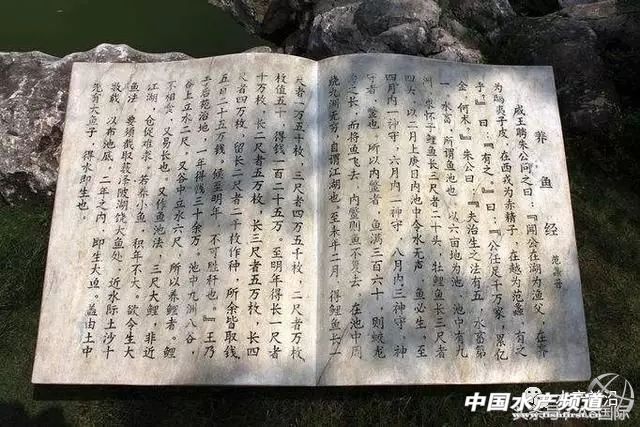 养鱼经 范蠡著
威王聘朱公问之曰：『闻公在湖为渔父，在齐
为鸱夷子皮，在西戎为赤精子，在越为范蠡，有之
乎。』曰：『有之。』曰：『公任足千万家，累亿
金，何术。』朱公曰：『夫治生之法有五，水畜第
一，水畜，所谓鱼池也。以六亩地为池，池中有九
洲，求怀子鲤鱼长三尺者二十头，牡鲤鱼长三尺者
四头，以二月上庚日内池中令水无声，鱼必生，至
四月内一神守，六月内一神守，八月内三神守，神
守者，鳖也，所以内鳖者，鱼满三百六十，则蛟龙
为之长，而将鱼飞去，内鳖则鱼不复去，在池中周
绕九洲无穷，自谓江湖也。至来年二月，得鲤鱼长一
尺者一万五千枚，三尺者四万五千枚，二尺者万枚，
枚值五十，得钱一百二十五万。至明年得长一尺者
十万枚，长二尺者五万枚，长三尺者五万枚，长四
尺者四万枚，留长二尺者二千枚作种，所余皆取钱，
五百二十五万钱，候至明年，不可胜计也。』王乃
于后苑治池，一年得钱三十余万。池中九洲八谷，
谷上立水二尺，又谷中立水六尺，所以养鲤者。鲤
不相食，又易长也。又作鱼池法，三尺大鲤，非近
江湖，仓促难求，若养小鱼，积年不大。欲令生大
鱼法，要须截取薮泽陂湖饶大鱼处，近水际土沙十
数载，以布池底，二年之内，即生大鱼。盖由土中
先有大鱼子，得水即生也。
中国水产频道
www.fishfirst.cn